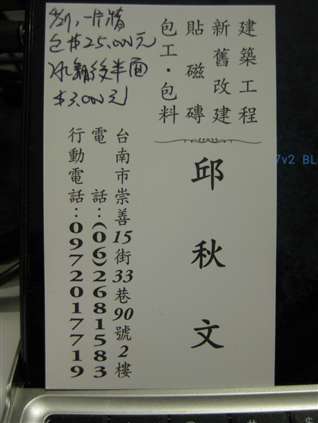 建築工程
新舊改建
貼磁磚
包工·包料
邱秋文
台南市崇善15街33巷90號2樓
電話：(06)2681583
行動電話：0972017719
一片牆
包$25,000元
後半面
$3,000元
7v2 BL